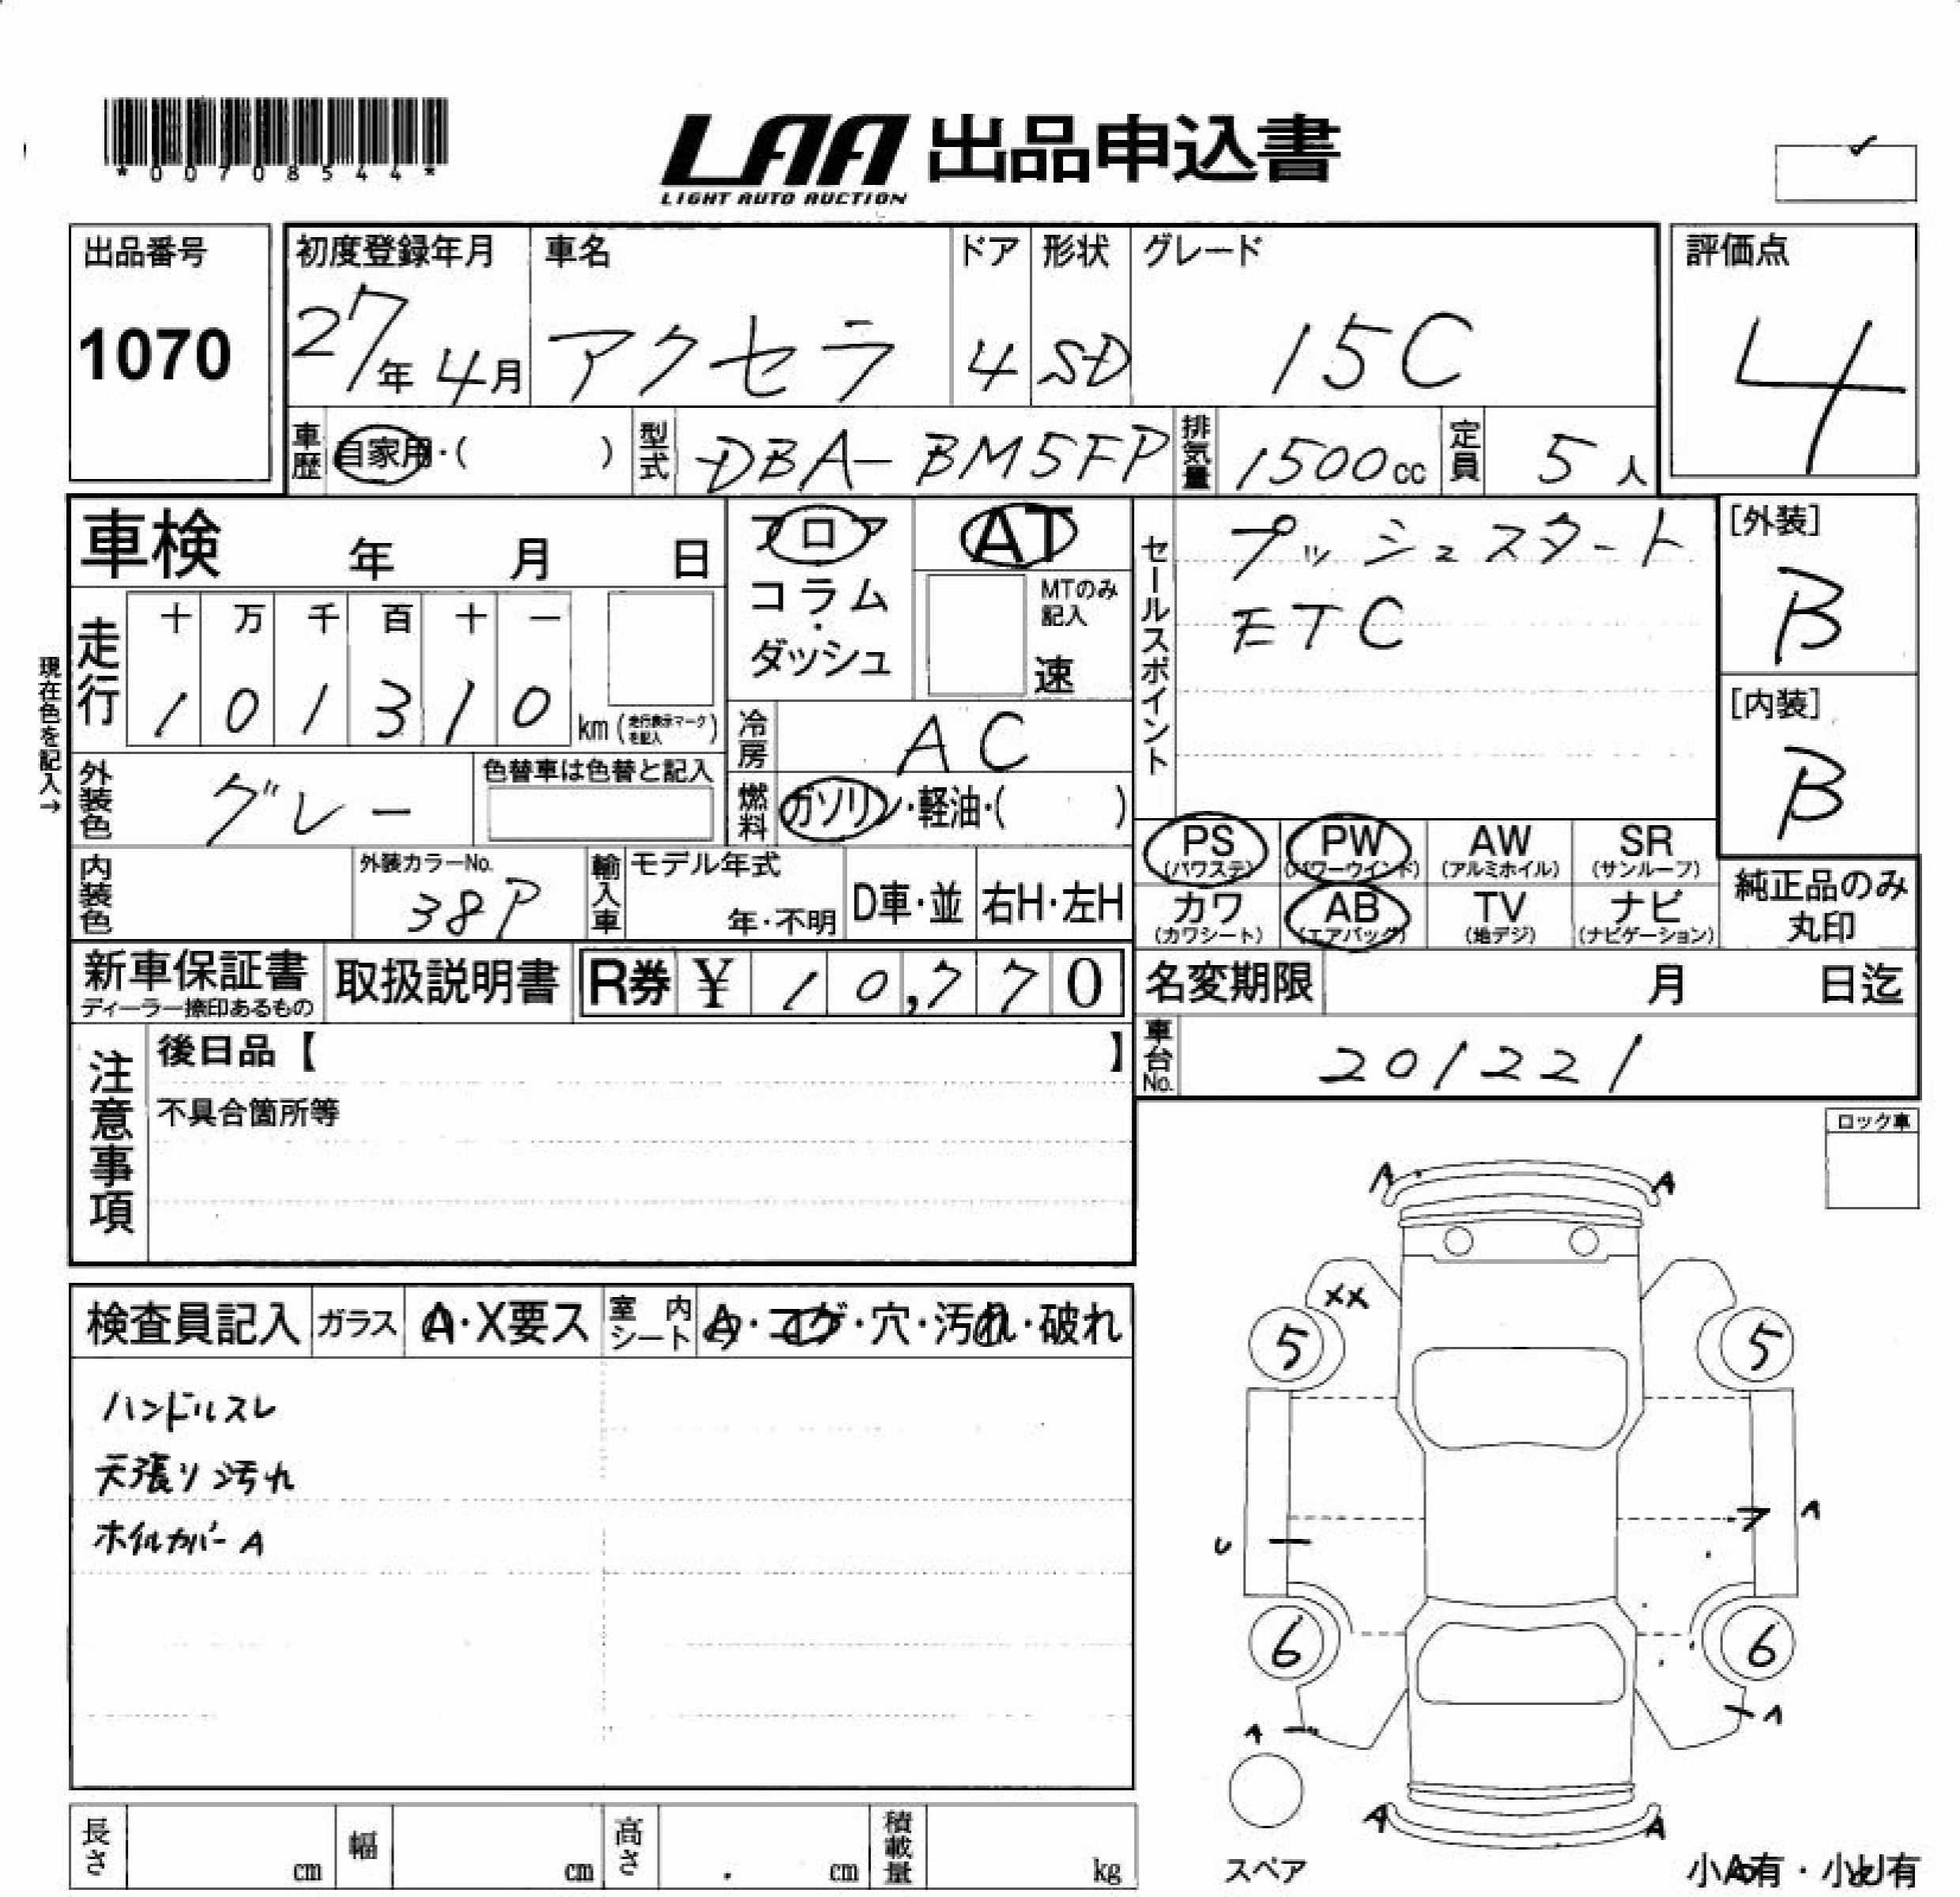 *00708544*
LAA 出品申込書
LIGHT AUTO AUCTION
出品番号
1070
初度登録年月
27年 4月
車名
アクセラ
ドア
4
形状
SD
グレード
15C
評価点
4
車歴 自家用・( )
型式 DBA-BM5FP
排気量 1500cc
定員 5人
車検 年 月 日
フロア
コラム
・
ダッシュ
AT
MTのみ記入
速
セールスポイント
プッシュスタート
ETC
[外装]
B
[内装]
B
現在色を記入→
走行
十 万 千 百 十 一
1 0 1 3 1 0 km (走行表示マークを記入)
冷房 AC
燃料 ガソリン・軽油・( )
外装色 グレー
色替車は色替と記入
内装色
外装カラーNo.
38P
輸入車
モデル年式
年・不明
D車・並
右H・左H
PS (パワステ)
PW (パワーウインド)
AW (アルミホイル)
SR (サンルーフ)
カワ (カワシート)
AB (エアバッグ)
TV (地デジ)
ナビ (ナビゲーション)
純正品のみ
丸印
新車保証書
ディーラー捺印あるもの
取扱説明書
R券 ¥ 10,770
名変期限 月 日迄
車台No. 201221
注意事項
後日品【 】
不具合箇所等
ロック車
検査員記入
ガラス A・X要ス
室内シート
・コゲ・穴・汚れ・破れ
ハンドルスレ
天張り汚れ
ホイルカバーA
A A
XX
5 5
U
A
6 6
A
A
A A
スペア
小A有・小U有
長さ cm
幅 cm
高さ cm
積載量 kg